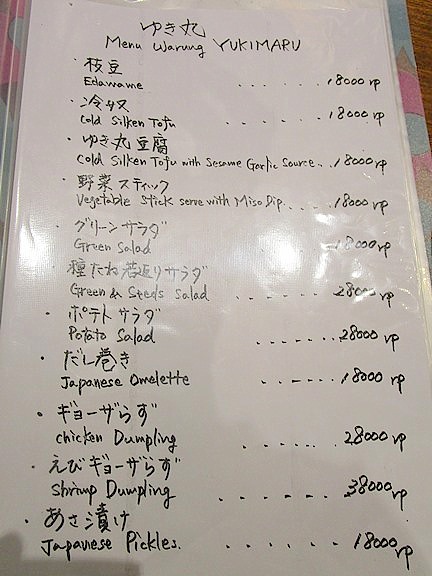 ゆき丸
Menu Warung YUKIMARU
・枝豆
Edamame ...... 18000 rp
・冷奴
Cold Silken Tofu ...... 18000 rp
・ゆき丸豆腐
Cold Silken Tofu with Sesame Garlic Source.. 18000 rp
・野菜スティック
Vegetable Stick serve with Miso Dip.... 18000 rp
・グリーンサラダ
Green Salad ...... 18000 rp
・種たね若返りサラダ
Green & Seeds Salad ...... 28000 rp
・ポテトサラダ
Potato Salad ...... 28000 rp
・だし巻き
Japanese Omelette ...... 18000 rp
・ギョーザらず
chicken Dumpling ...... 28000 rp
・えびギョーザらず
Shrimp Dumpling ...... 38000 rp
・あさ漬け
Japanese Pickles. ...... 18000 rp